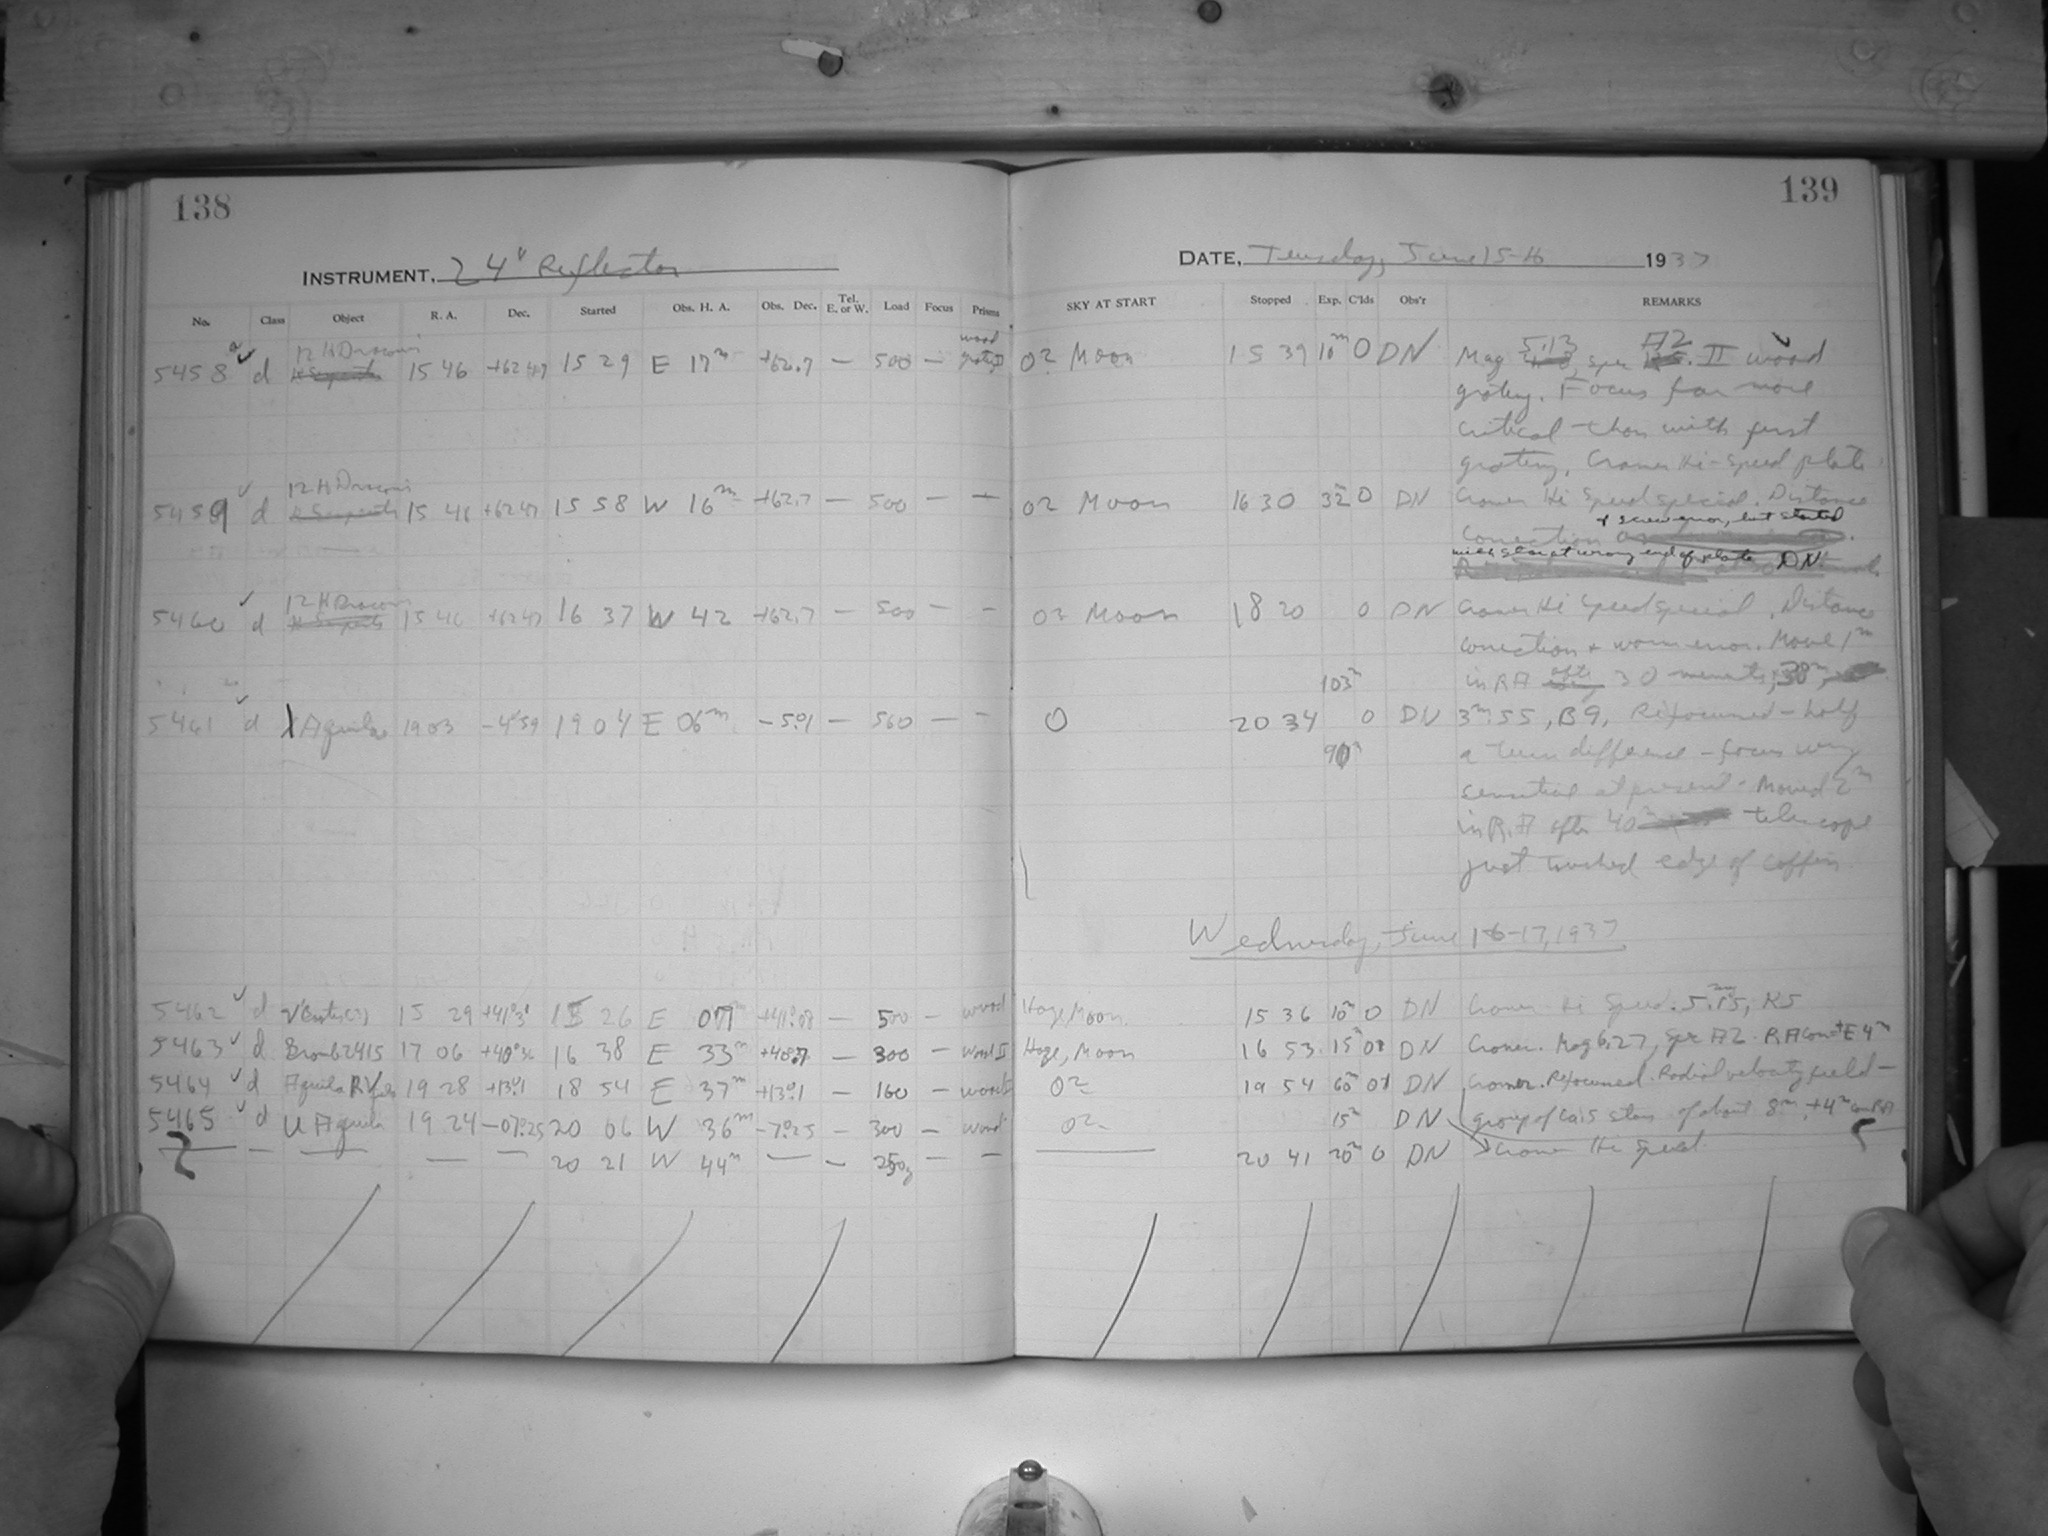 138
INSTRUMENT, 24" Reflector
No. Class Object R. A. Dec. Started Obs. H. A. Obs. Dec. Tel. E. or W. Load Focus Prisms
12 H Draconis wood
5458 d 15 46 +62 47 15 29 E 17m +62.7 — 500 — grating
12 H Draconis
5459 d 15 46 +62 47 15 58 W 16m +62.7 — 500 — —
12 H Draconis
5460 d 15 46 +62 47 16 37 W 42 +62.7 — 500 — —
5461 d λ Aquilae 19 03 -4°59 19 04 E 06m -5°.1 — 500 — —
5462 d 15 29 15 26 E — 500 — wood
5463 d 17 06 +40°36 16 38 E 33m — 300 — wood II
5464 d Aquila 19 28 +13°.1 18 54 E 37m +13°.1 — 160 — wood
5465 d U Aquila 19 24 -07°.25 20 06 W 36m -7°.25 — 300 — wood
— — — — 20 21 W 44m — — — —
139
DATE, Tuesday, June 15-16 1937
SKY AT START Stopped Exp. C'lds Obs'r REMARKS
02 Moon 15 39 10m 0 DN Mag 5.13, spec A2. II wood
grating. Focus far more
critical than with first
grating, Cramer Hi-Speed plate
02 Moon 16 30 32 0 DN Cramer Hi Speed special. Distance
correction + screw error, but started
with slow at wrong end of plate DN.
02 Moon 18 20 0 DN Cramer Hi Speed special. Distance
correction + worm error. Move 1m
103m in RA after 30 minutes,
0 20 34 0 DN 3m.55, B9, Refocused - half
90m a turn difference - focus very
sensitive at present. Moved 2m
in R.A after 40m telescope
just touched edge of coffin.
Wednesday, June 16-17, 1937
Haze, Moon 15 36 10m 0 DN Cramer Hi Speed. K5
Haze, Moon 16 53 15m DN Cramer. Mag 6.27, Spec A2.
02 19 54 60m DN Cramer. Refocused. Radial velocity field -
02 15m DN group of stars of about 8m,
20 41 20m 0 DN Cramer Hi Speed